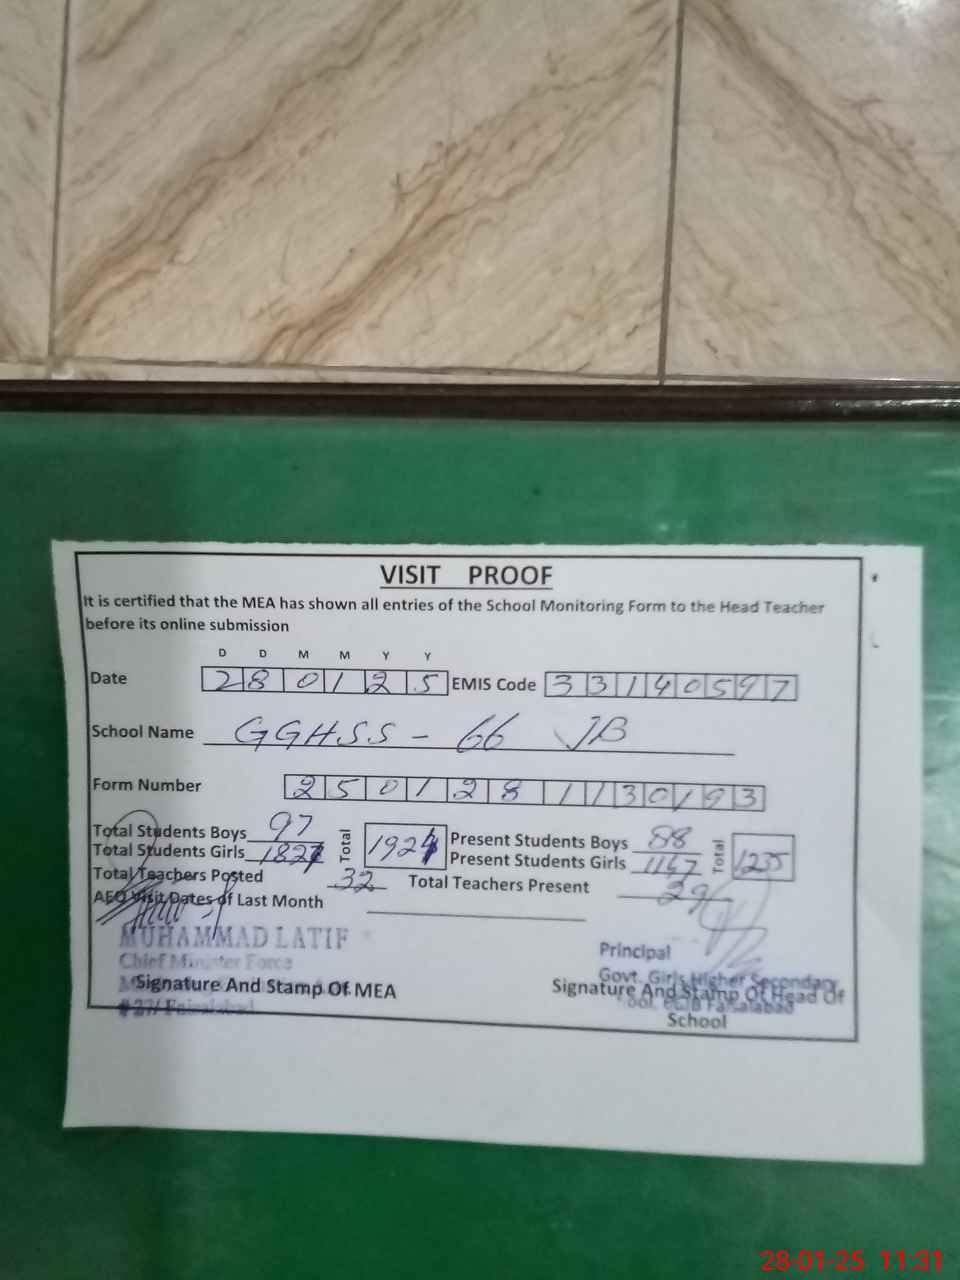 VISIT PROOF
It is certified that the MEA has shown all entries of the School Monitoring Form to the Head Teacher
before its online submission
D D M M Y Y
Date 280125 EMIS Code 33140597
School Name GGHSS - 66 JB
Form Number 250128 1130193
Total Students Boys 97 Total Present Students Boys 88 Total 1235
Total Students Girls Present Students Girls 1147
Total Teachers Posted 32 Total Teachers Present 29
AEO Visit Dates of Last Month
MUHAMMAD LATIF
Chief Minister Force
Signature And Stamp Of MEA
#27/ Faisalabad
Principal
Govt. Girls Higher Secondary
Signature And Stamp Of Head Of
Faisalabad
School
28-01-25 11:31